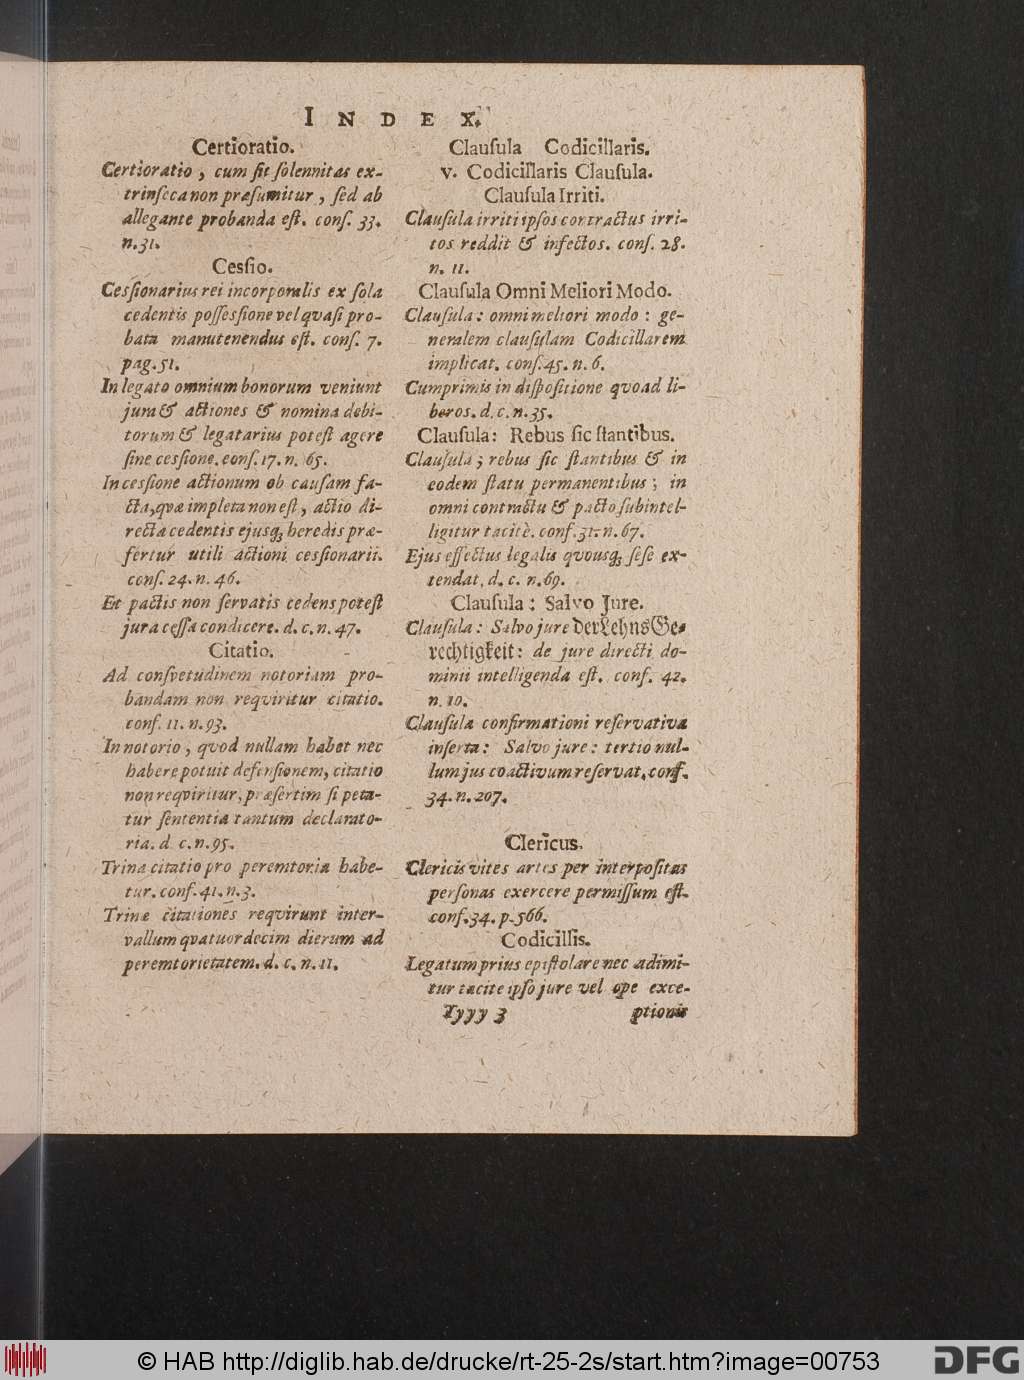 INDEX.
Certioratio.
Certioratio, cum ſit ſolennitas ex-
trinſeca non præſumitur, ſed ab
allegante probanda eſt. conſ. 33.
n. 31.
Ceſſio.
Ceſſionarius rei incorporalis ex ſola
cedentis poſſeſſione vel qvaſi pro-
bata manutenendus eſt. conſ. 7.
pag. 51.
In legato omnium bonorum veniunt
jura & actiones & nomina debi-
torum & legatarius poteſt agere
ſine ceſſione. conſ. 17. n. 65.
In ceſſione actionum ob cauſam fa-
cta, qvæ impleta non eſt, actio di-
recta cedentis ejusq; heredis præ-
fertur utili actioni ceſſionarii.
conſ. 24. n. 46.
Et pactis non ſervatis cedens poteſt
jura ceſſa condicere. d. c. n. 47.
Citatio.
Ad conſvetudinem notoriam pro-
bandam non reqviritur citatio.
conſ. 11. n. 93.
In notorio, qvod nullam habet nec
habere potuit defenſionem, citatio
non reqviritur, præſertim ſi peta-
tur ſententia tantum declarato-
ria. d. c. n. 95.
Trina citatio pro peremtoria habe-
tur. conſ. 41. n. 3.
Trinæ citationes reqvirunt inter-
vallum qvatuordecim dierum ad
peremtorietatem. d. c. n. 11.
Clauſula Codicillaris.
v. Codicillaris Clauſula.
Clauſula Irriti.
Clauſula irriti ipſos contractus irri-
tos reddit & infectos. conſ. 28.
n. 11.
Clauſula Omni Meliori Modo.
Clauſula: omni meliori modo: ge-
neralem clauſulam Codicillarem
implicat. conſ. 45. n. 6.
Cumprimis in diſpoſitione qvoad li-
beros. d. c. n. 35.
Clauſula: Rebus ſic ſtantibus.
Clauſula; rebus ſic ſtantibus & in
eodem ſtatu permanentibus; in
omni contractu & pacto ſubintel-
ligitur tacitè. conſ. 31. n. 67.
Ejus effectus legalis qvousq; ſeſe ex-
tendat. d. c. n. 69.
Clauſula: Salvo Jure.
Clauſula: Salvo jure der Lehns Ge-
rechtigkeit: de jure directi do-
minii intelligenda eſt. conſ. 42.
n. 10.
Clauſula confirmationi reſervativa
inſerta: Salvo jure: tertio nul-
lum jus coactivum reſervat. conſ.
34. n. 207.
Clericus.
Clericis vites artes per interpoſitas
perſonas exercere permiſſum eſt.
conſ. 34. p. 566.
Codicillis.
Legatum prius epiſtolare nec adimi-
tur tacite ipſo jure vel ope exce-
Yyyy 3 ptionis
© HAB http://diglib.hab.de/drucke/rt-25-2s/start.htm?image=00753
DFG